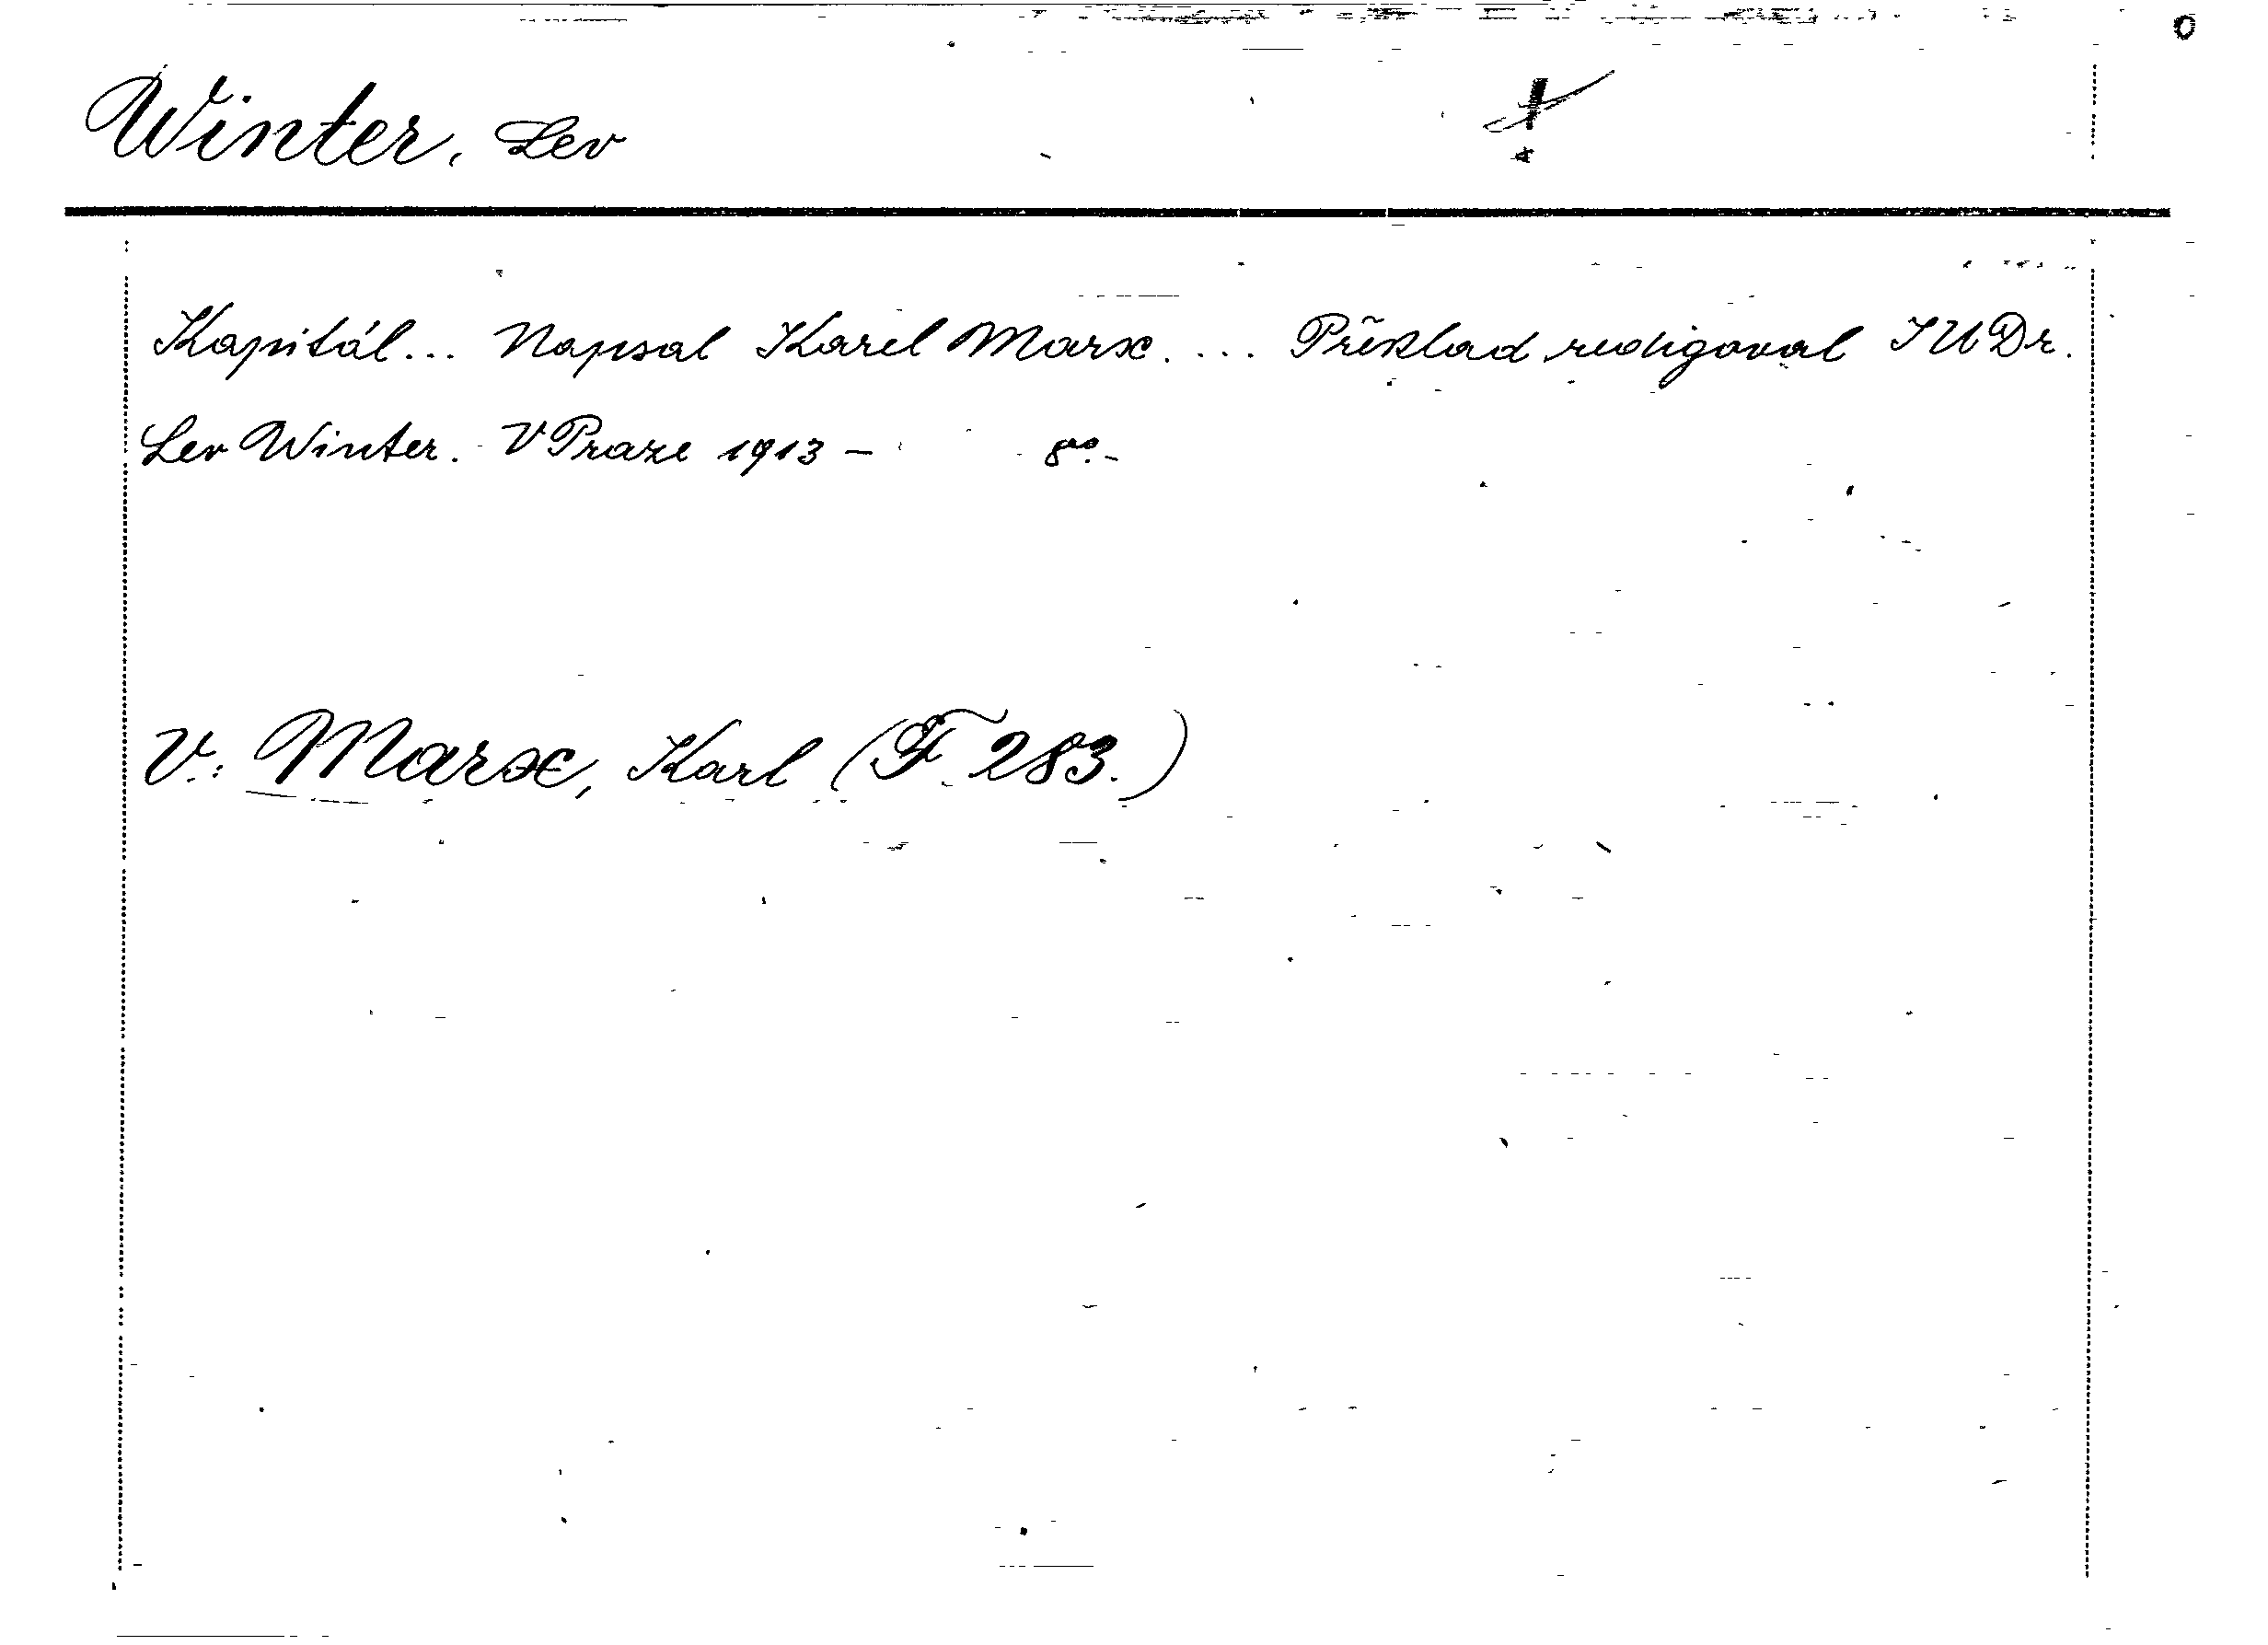 Winter, Lev
Kapitál... Napsal Karel Marx. ... Překlad redigoval JUDr.
Lev Winter. V Praze 1913 - 8vo. -
V.: Marx, Karl (F 283.)